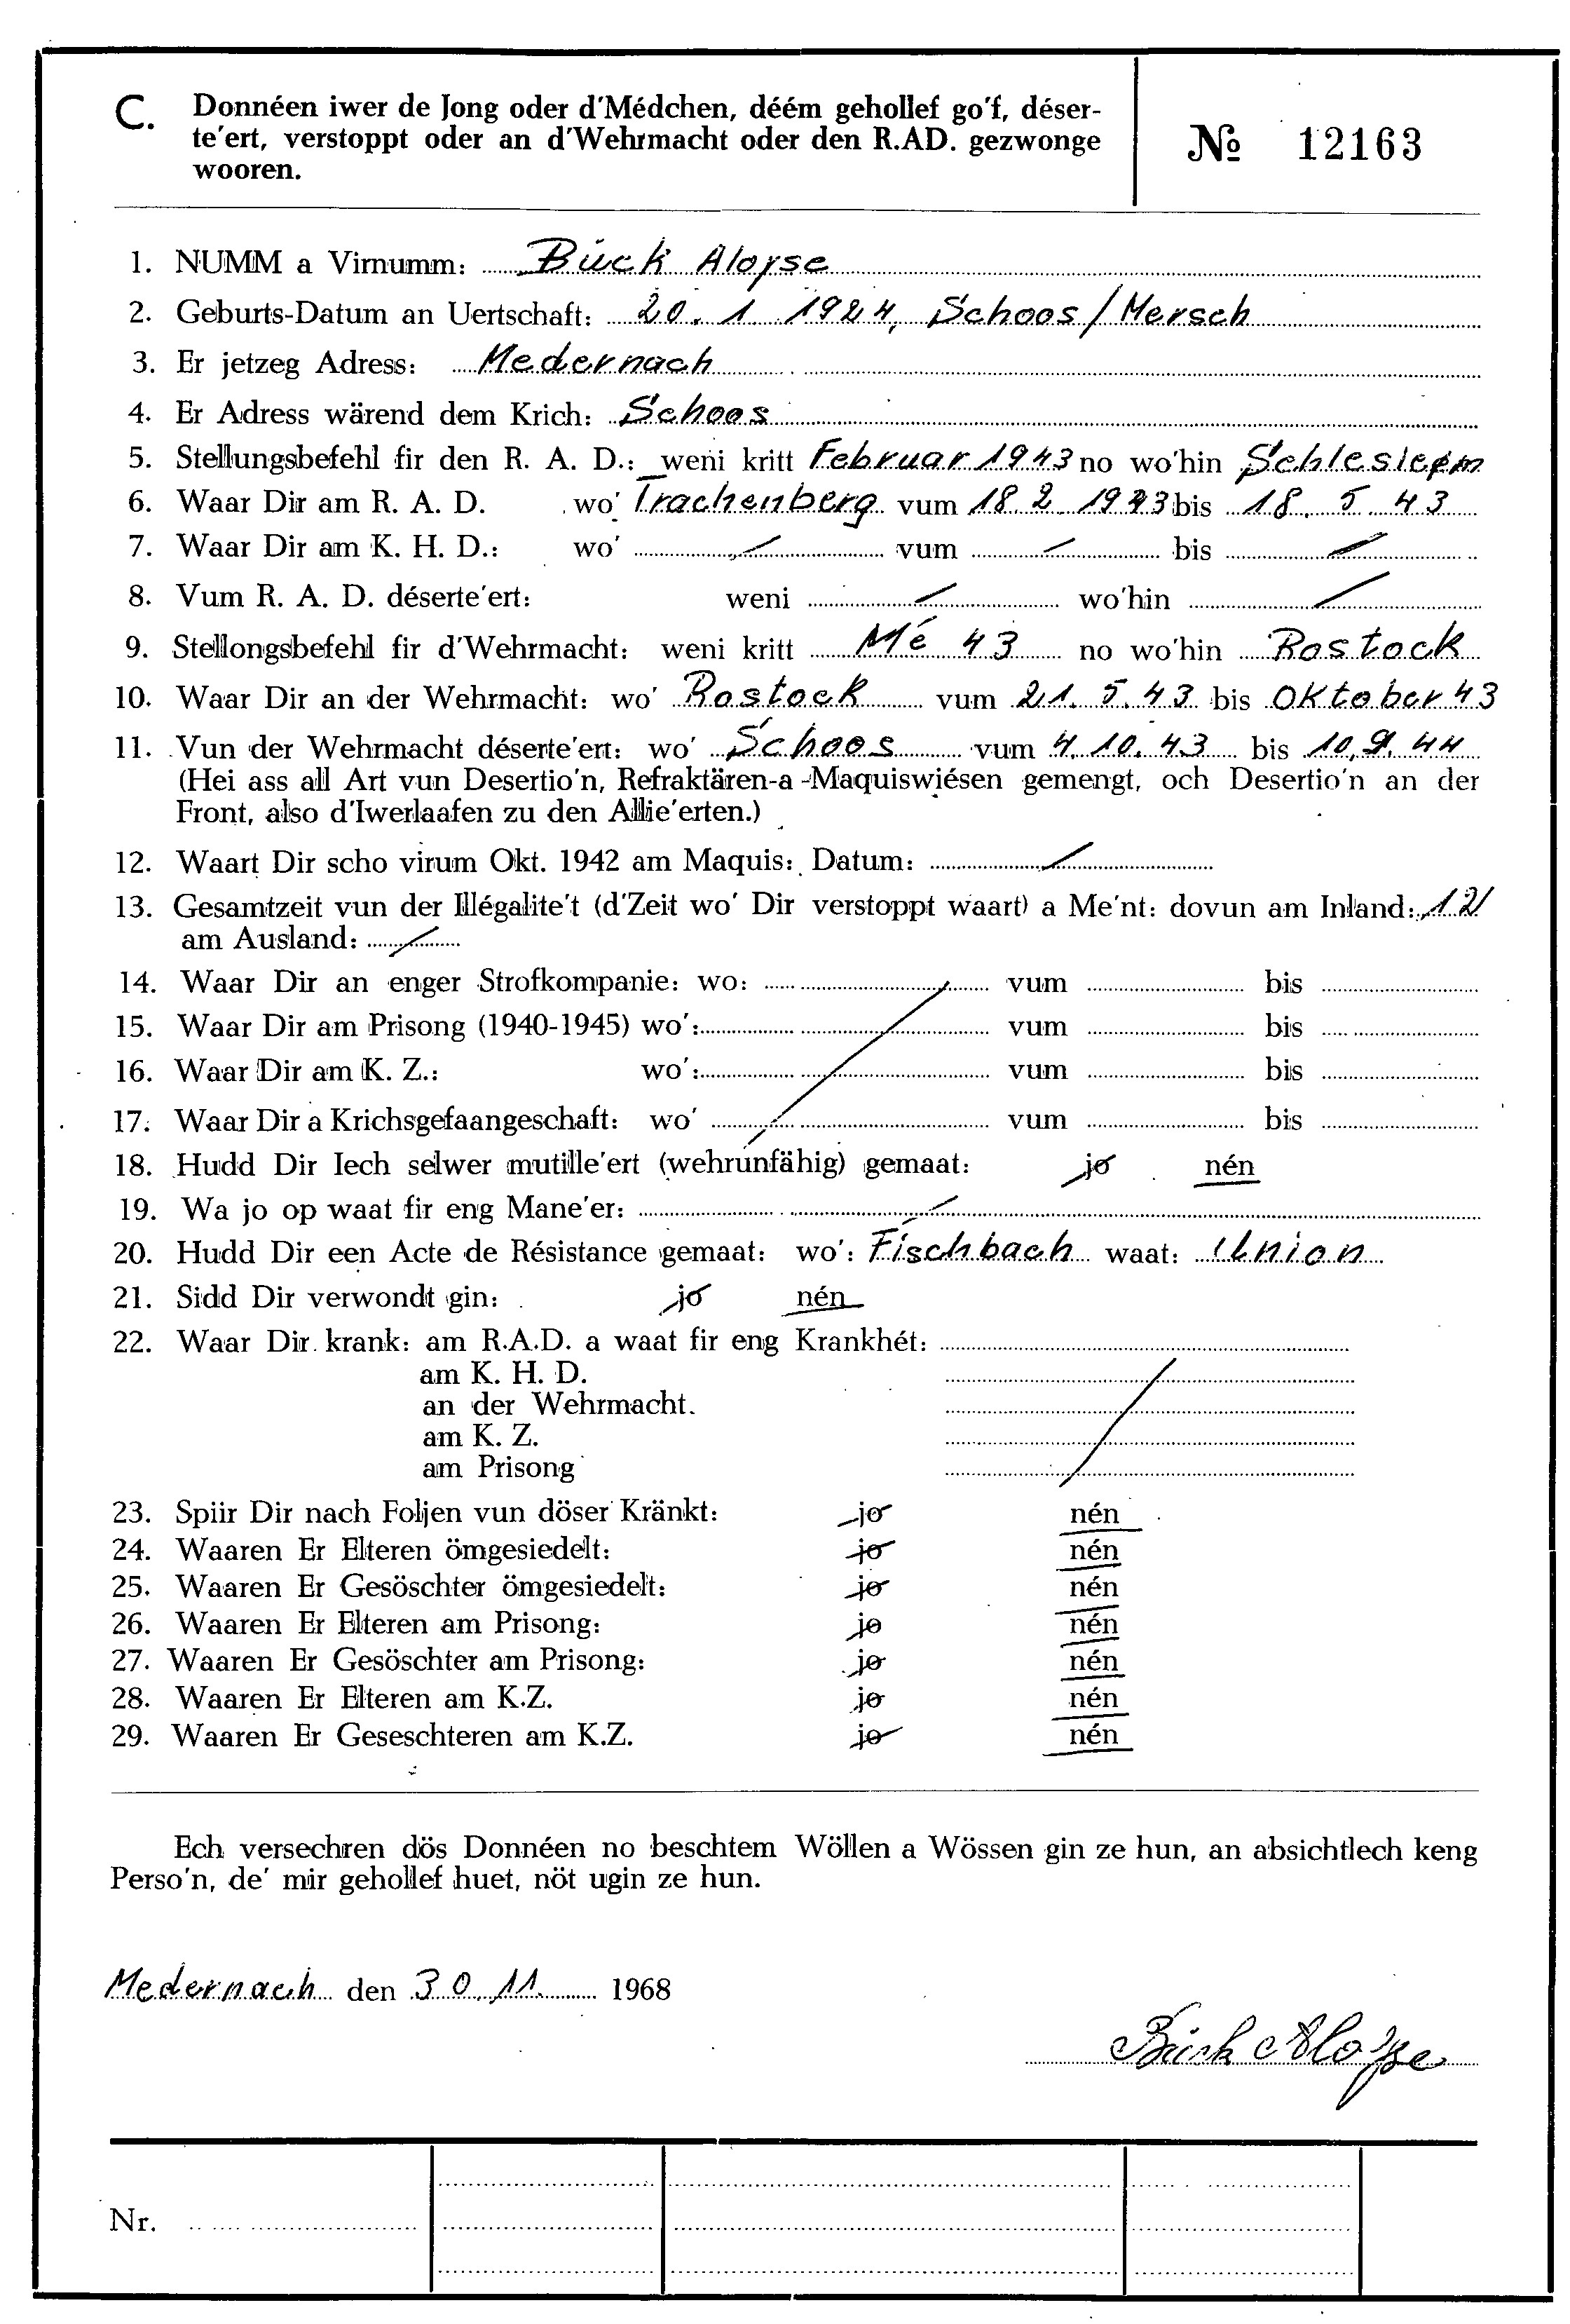 C. Donnéen iwer de Jong oder d'Médchen, déém gehollef go'f, déser-
te'ert, verstoppt oder an d'Wehrmacht oder den R.AD. gezwonge
wooren.
№ 12163
1. NUMM a Virnumm: Bück Aloyse
2. Geburts-Datum an Uertschaft: 20. 1. 1924, Schoos/Mersch
3. Er jetzeg Adress: Medernach
4. Er Adress wärend dem Krich: Schoos
5. Stellungsbefehl fir den R. A. D.: weni kritt Februar 1943 no wo'hin
6. Waar Dir am R. A. D. wo' Trachenberg vum 18 2 1943 bis 18. 5. 43
7. Waar Dir am K. H. D.: wo' / vum / bis /
8. Vum R. A. D. déserte'ert: weni / wo'hin /
9. Stellongsbefehl fir d'Wehrmacht: weni kritt Mé 43 no wo'hin Rostock
10. Waar Dir an der Wehrmacht: wo' Rostock vum 21. 5. 43 bis Oktober 43
11. Vun der Wehrmacht déserte'ert: wo' Schoos vum 4. 10. 43 bis 10. 9. 44
(Hei ass all Art vun Desertio'n, Refraktären-a-Maquiswiésen gemengt, och Desertio'n an der
Front, also d'Iwerlaafen zu den Allie'erten.)
12. Waart Dir scho virum Okt. 1942 am Maquis: Datum: /
13. Gesamtzeit vun der Illégalite't (d'Zeit wo' Dir verstoppt waart) a Me'nt: dovun am Inland: 12
am Ausland: /
14. Waar Dir an enger Strofkompanie: wo: vum bis
15. Waar Dir am Prisong (1940-1945) wo': vum bis
16. Waar Dir am K. Z.: wo': vum bis
17. Waar Dir a Krichsgefaangeschaft: wo' vum bis
18. Hudd Dir Iech selwer mutille'ert (wehrunfähig) gemaat: jo nén
19. Wa jo op waat fir eng Mane'er: /
20. Hudd Dir een Acte de Résistance gemaat: wo': Fischbach waat: Union
21. Sidd Dir verwondt gin: jo nén
22. Waar Dir krank: am R.A.D. a waat fir eng Krankhét:
am K. H. D.
an der Wehrmacht.
am K. Z.
am Prisong
23. Spiir Dir nach Foljen vun döser Kränkt: jo nén
24. Waaren Er Elteren ömgesiedelt: jo nén
25. Waaren Er Gesöschter ömgesiedelt: jo nén
26. Waaren Er Elteren am Prisong: jo nén
27. Waaren Er Gesöschter am Prisong: jo nén
28. Waaren Er Elteren am K.Z. jo nén
29. Waaren Er Geseschteren am K.Z. jo nén
Ech versechren dös Donnéen no beschtem Wöllen a Wössen gin ze hun, an absichtlech keng
Perso'n, de' mir gehollef huet, nöt ugin ze hun.
Medernach den 30. 11. 1968
Bück Aloyse
Nr.